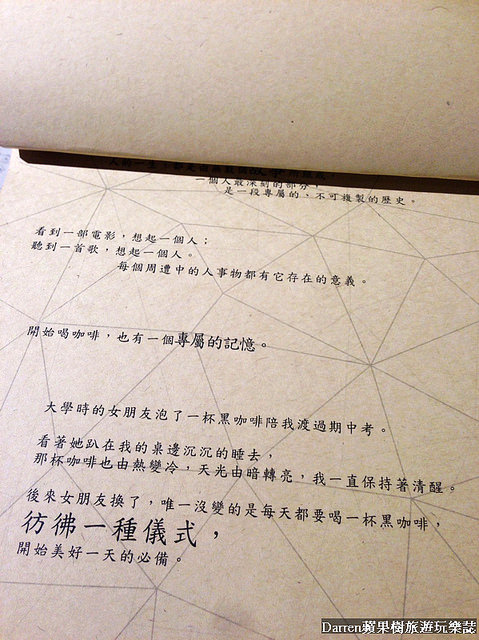 一個人最深刻的部分，
是一段專屬的、不可複製的歷史。
看到一部電影，想起一個人；
聽到一首歌，想起一個人。
每個周遭中的人事物都有它存在的意義。
開始喝咖啡，也有一個專屬的記憶。
大學時的女朋友泡了一杯黑咖啡陪我渡過期中考。
看著她趴在我的桌邊沉沉的睡去，
那杯咖啡也由熱變冷，天光由暗轉亮，我一直保持著清醒。
後來女朋友換了，唯一沒變的是每天都要喝一杯黑咖啡，
彷彿一種儀式，
開始美好一天的必備。
Darren蘋果樹旅遊玩樂誌